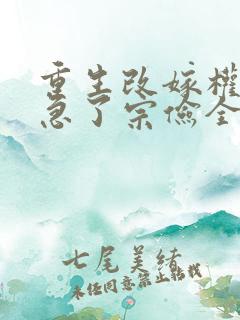 重生改嫁权
急了宗俭全
七尾美绪
未经同意禁止转载